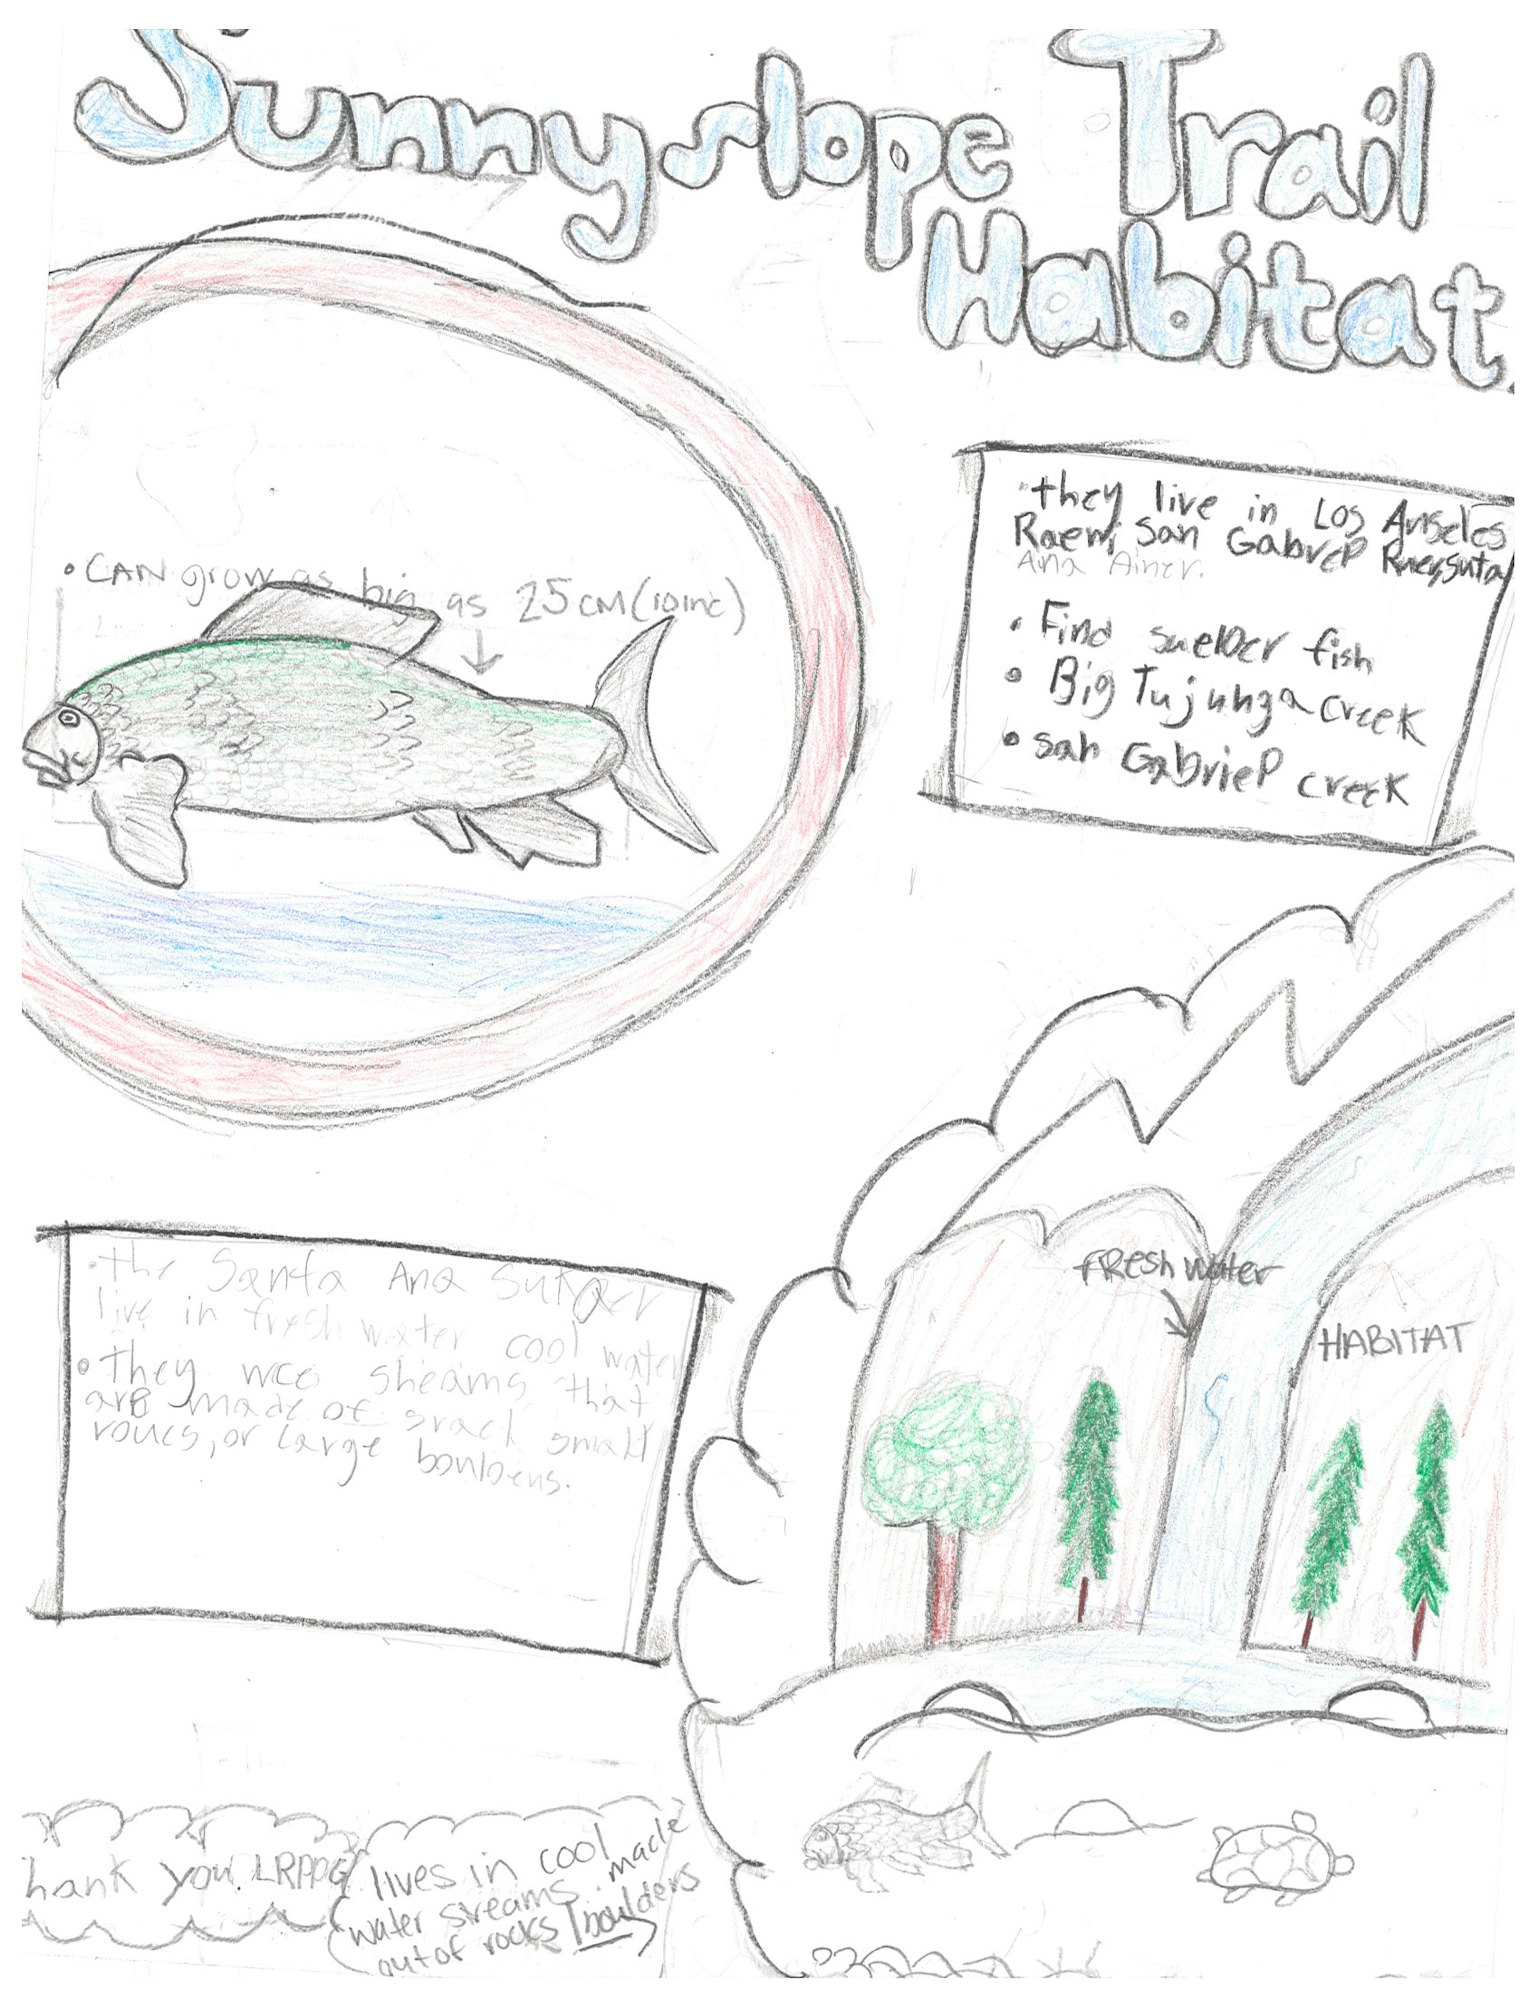 Sunnyslope Trail
Habitat.
• they live in Los Angeles
San Gabriel
Ana
• Find fish
• Big Tujunga creek
• san Gabriel creek
• CAN grow as big as 25 CM (10 inc)
FREsh water
HABITAT
• the Santa Ana
live in fresh water cool water
• they streams that
are made of small
or large
Thank you LRPPG
lives in cool
water streams. made
out of rocks / boulders